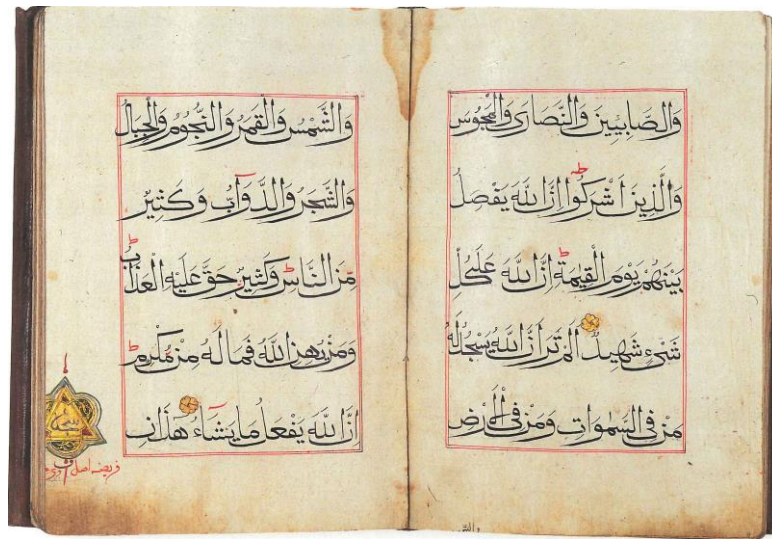 وَالصَّابِـِٕينَ وَالنَّصَارَى وَالْمَجُوسَ
وَالَّذِينَ اَشْرَكُوا اِنَّ اللّٰهَ يَفْصِلُ
بَيْنَهُمْ يَوْمَ الْقِيٰمَةِ اِنَّ اللّٰهَ عَلٰى كُلِّ
شَىْءٍ شَهِيدٌ اَلَمْ تَرَ اَنَّ اللّٰهَ يَسْجُدُ لَهُ
مَنْ فِى السَّمٰوَاتِ وَمَنْ فِى الْاَرْضِ
وَالشَّمْسُ وَالْقَمَرُ وَالنُّجُومُ وَالْجِبَالُ
وَالشَّجَرُ وَالدَّوَآبُّ وَكَثِيرٌ
مِنَ النَّاسِ وَكَثِيرٌ حَقَّ عَلَيْهِ الْعَذَابُ
وَمَنْ يُهِنِ اللّٰهُ فَمَا لَهُ مِنْ مُكْرِمٍ
اِنَّ اللّٰهَ يَفْعَلُ مَا يَشَآءُ هٰذَانِ